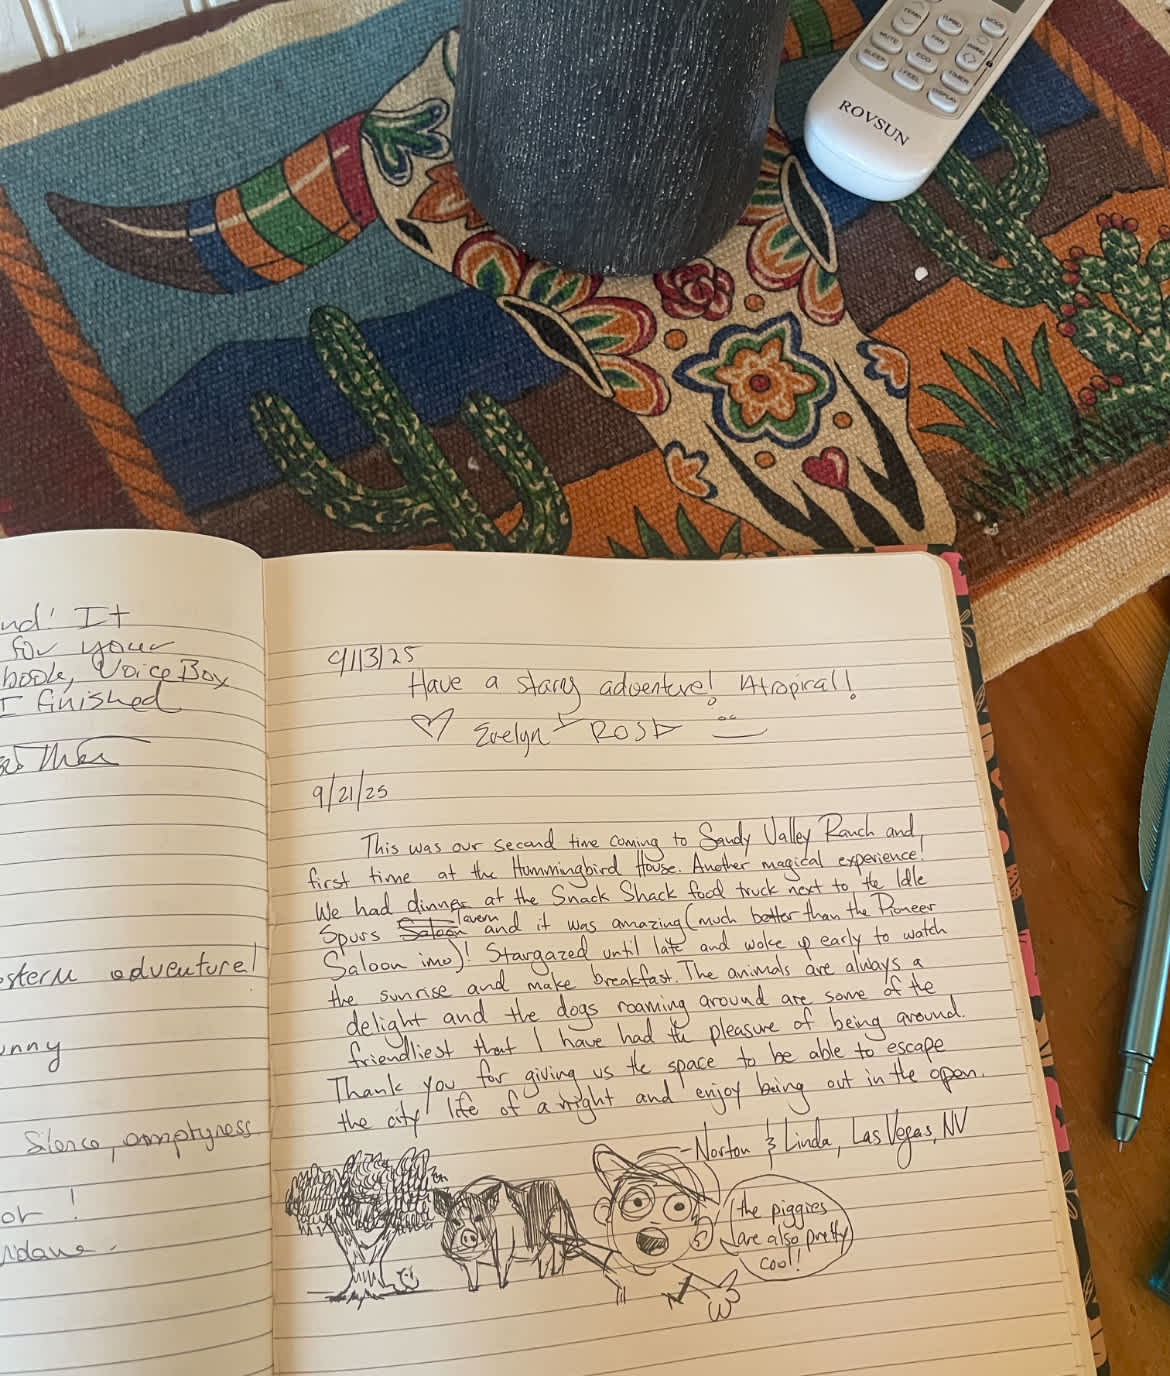 TEMP
TURBO
MODE
MUTE
FAN
SLEEP
ECO
TIMER
I FEEL
DISPLAY
ROVSUN
It
for your
book, Voice Box
I finished
adventure!
Silence, emptyness
9/13/25
Have a starry adventure! Atropical!
Evelyn + ROSA
9/21/25
This was our second time coming to Sandy Valley Ranch and
first time at the Hummingbird House. Another magical experience!
We had dinner at the Snack Shack food truck next to the Idle
Spurs Saloon Tavern and it was amazing (much better than the Pioneer
Saloon imo)! Stargazed until late and woke up early to watch
the sunrise and make breakfast. The animals are always a
delight and the dogs roaming around are some of the
friendliest that I have had the pleasure of being around.
Thank you for giving us the space to be able to escape
the city life of a night and enjoy being out in the open.
- Norton & Linda, Las Vegas, NV
the piggies
are also pretty
cool!